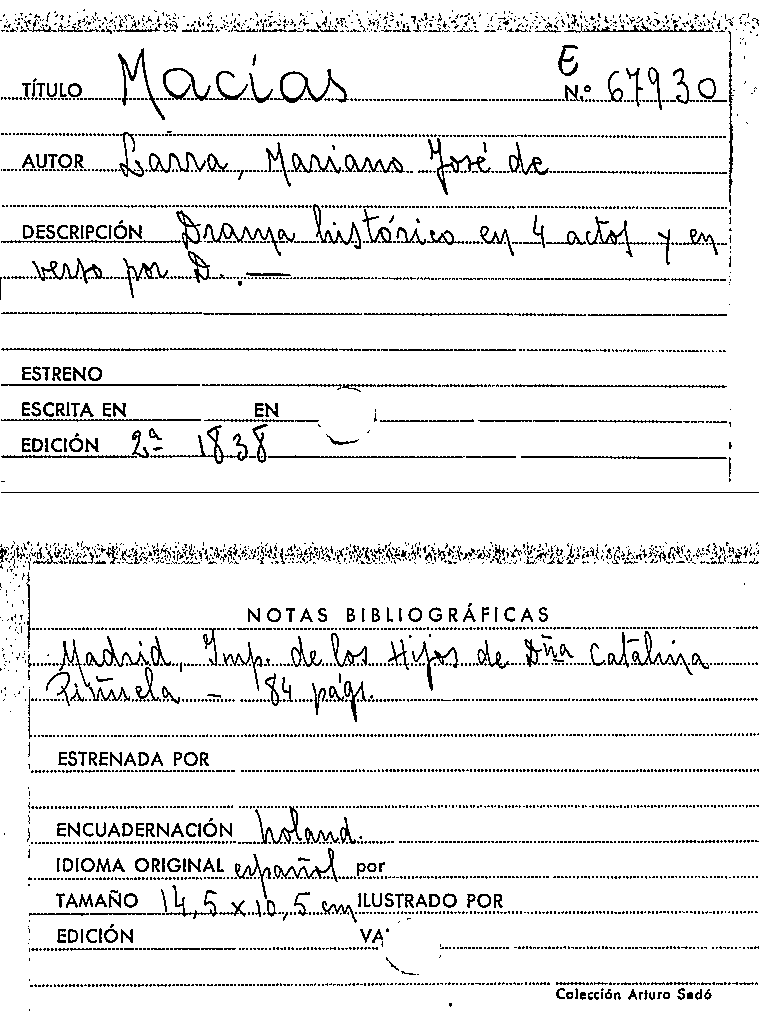 E
TÍTULO Macías N.º 67930
AUTOR Larra, Mariano José de
DESCRIPCIÓN Drama histórico en 4 actos y en
verso por D. . —
ESTRENO
ESCRITA EN EN
EDICIÓN 2ª 1838
NOTAS BIBLIOGRÁFICAS
Madrid, Imp. de los Hijos de Dña Catalina
Piñuela — 84 págs.
ESTRENADA POR
ENCUADERNACIÓN holand.
IDIOMA ORIGINAL español por
TAMAÑO 14,5 x 10,5 cm ILUSTRADO POR
EDICIÓN VA
Colección Arturo Sedó